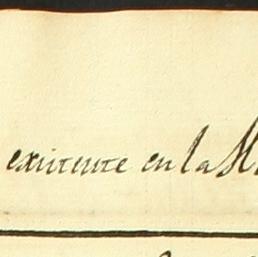 existente en la